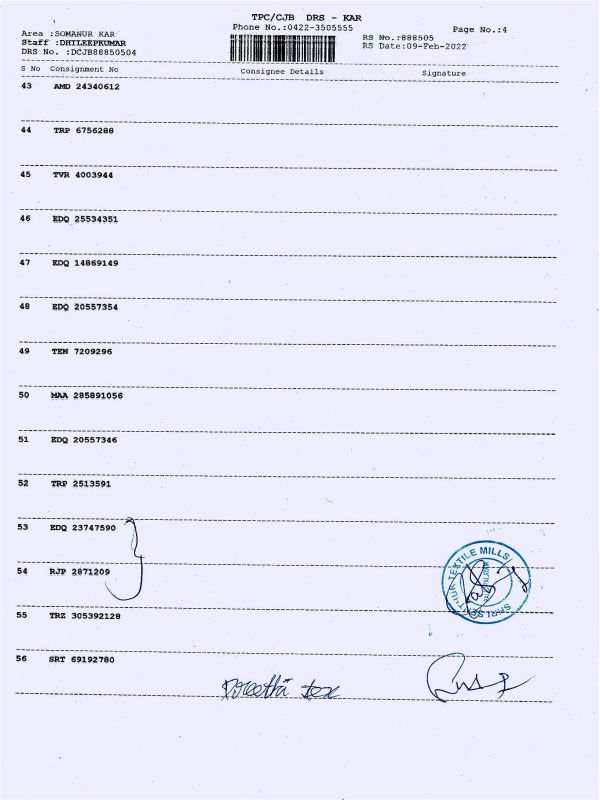 TPC/CJB DRS - KAR
Phone No.:0422-3505555
Page No.:4
Area :SOMANUR KAR
RS No.:888505
Staff :DHILEEPKUMAR
RS Date:09-Feb-2022
DRS No. :DCJB88850504
S No Consignment No Consignee Details Signature
43 AMD 24340612
44 TRP 6756288
45 TVR 4003944
46 EDQ 25534351
47 EDQ 14869149
48 EDQ 20557354
49 TEN 7209296
50 MAA 285891056
51 EDQ 20557346
52 TRP 2513591
53 EDQ 23747590
54 RJP 2871209
TEXTILE MILLS
55 TRZ 305392128
56 SRT 69192780
tex